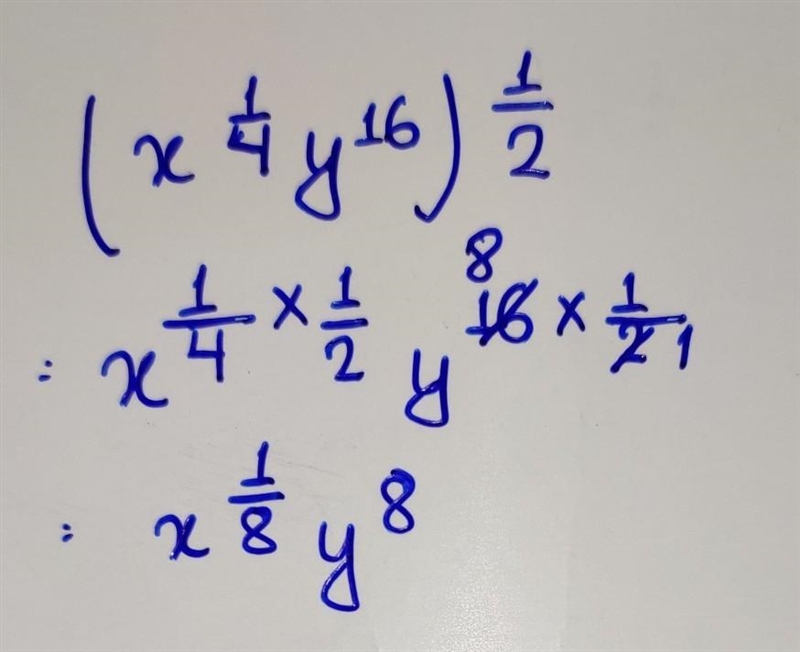 (x^{1/4} y^{16})^{1/2}
: x^{1/4 × 1/2} y^{~~16~~ 8 × 1/~~2~~ 1}
: x^{1/8} y^8